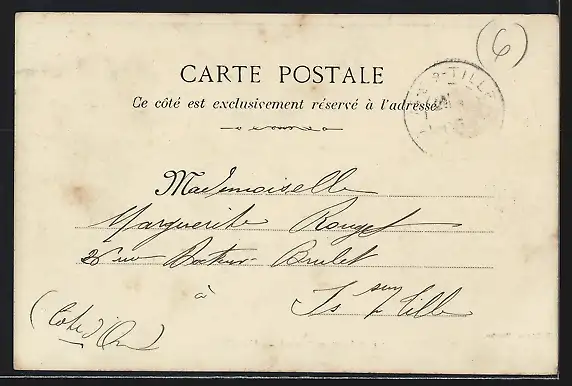 (6)
CARTE POSTALE
Ce côté est exclusivement réservé à l'adresse
S-TILLE
Mademoiselle
Marguerite Rouget
26 rue Docteur Brulet
à Is sur Tille
(Côte d'Or)